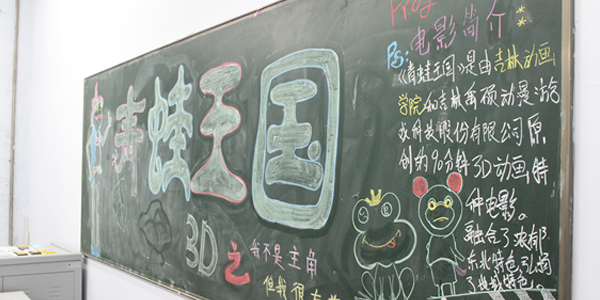 青蛙王国
3D之
我不是主角
但我很
Frog
电影简介
Ps:
《青蛙王国》是由吉林动画
学院和吉林禹硕动漫游
戏科技股份有限公司原
创约90分钟3D动画特
种电影。
融合了浓郁
东北特色,弘扬
了特色。